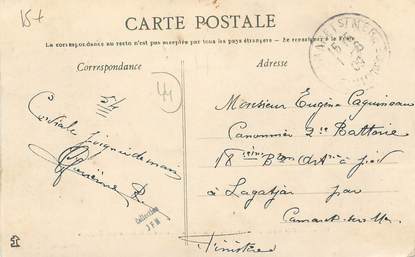 15+
CARTE POSTALE
La correspondance au recto n'est pas acceptée par tous les pays étrangers. — Se renseigner à la Poste
Correspondance
Adresse
44
Cordiale Poignée de main
Monsieur Eugène Caquineau
Canonnier 2ie Battorie
18 ième Bton d'Artie à pied
à Lagatjar par
Camaret-sur-Mer
Finistère
Collection